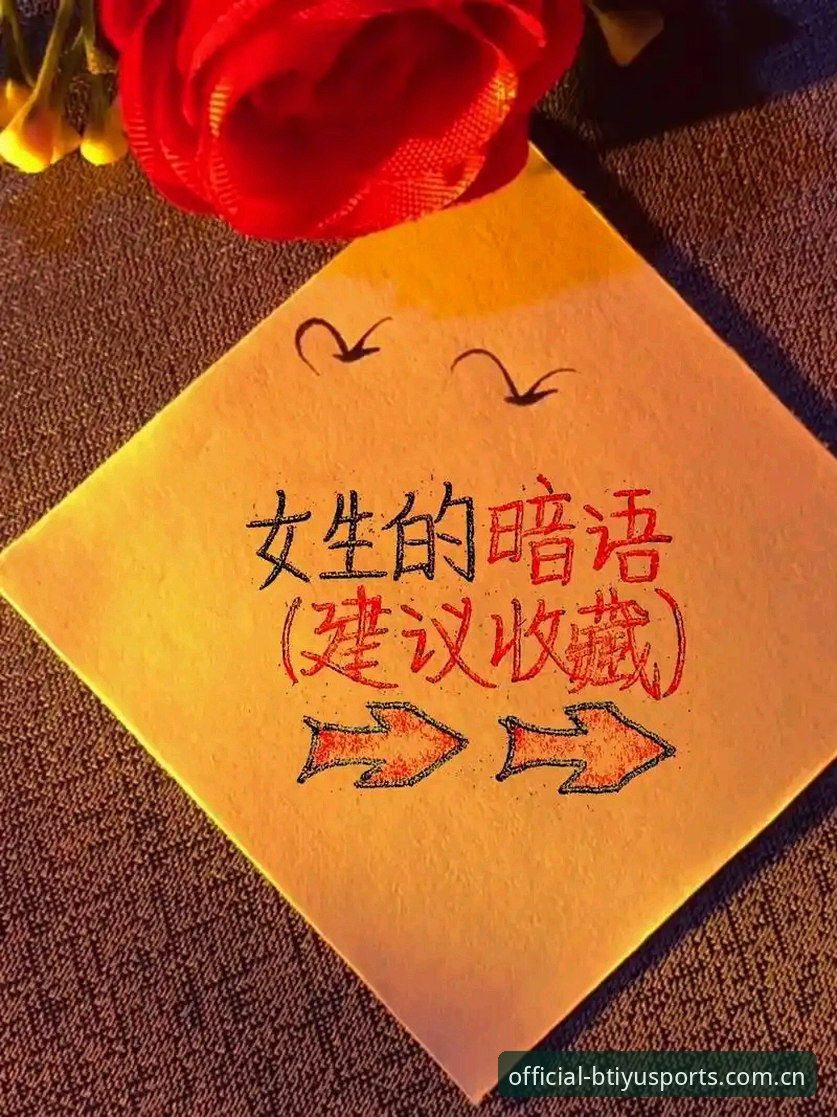 女生的暗语
(建议收藏)
official-btiyusports.com.cn